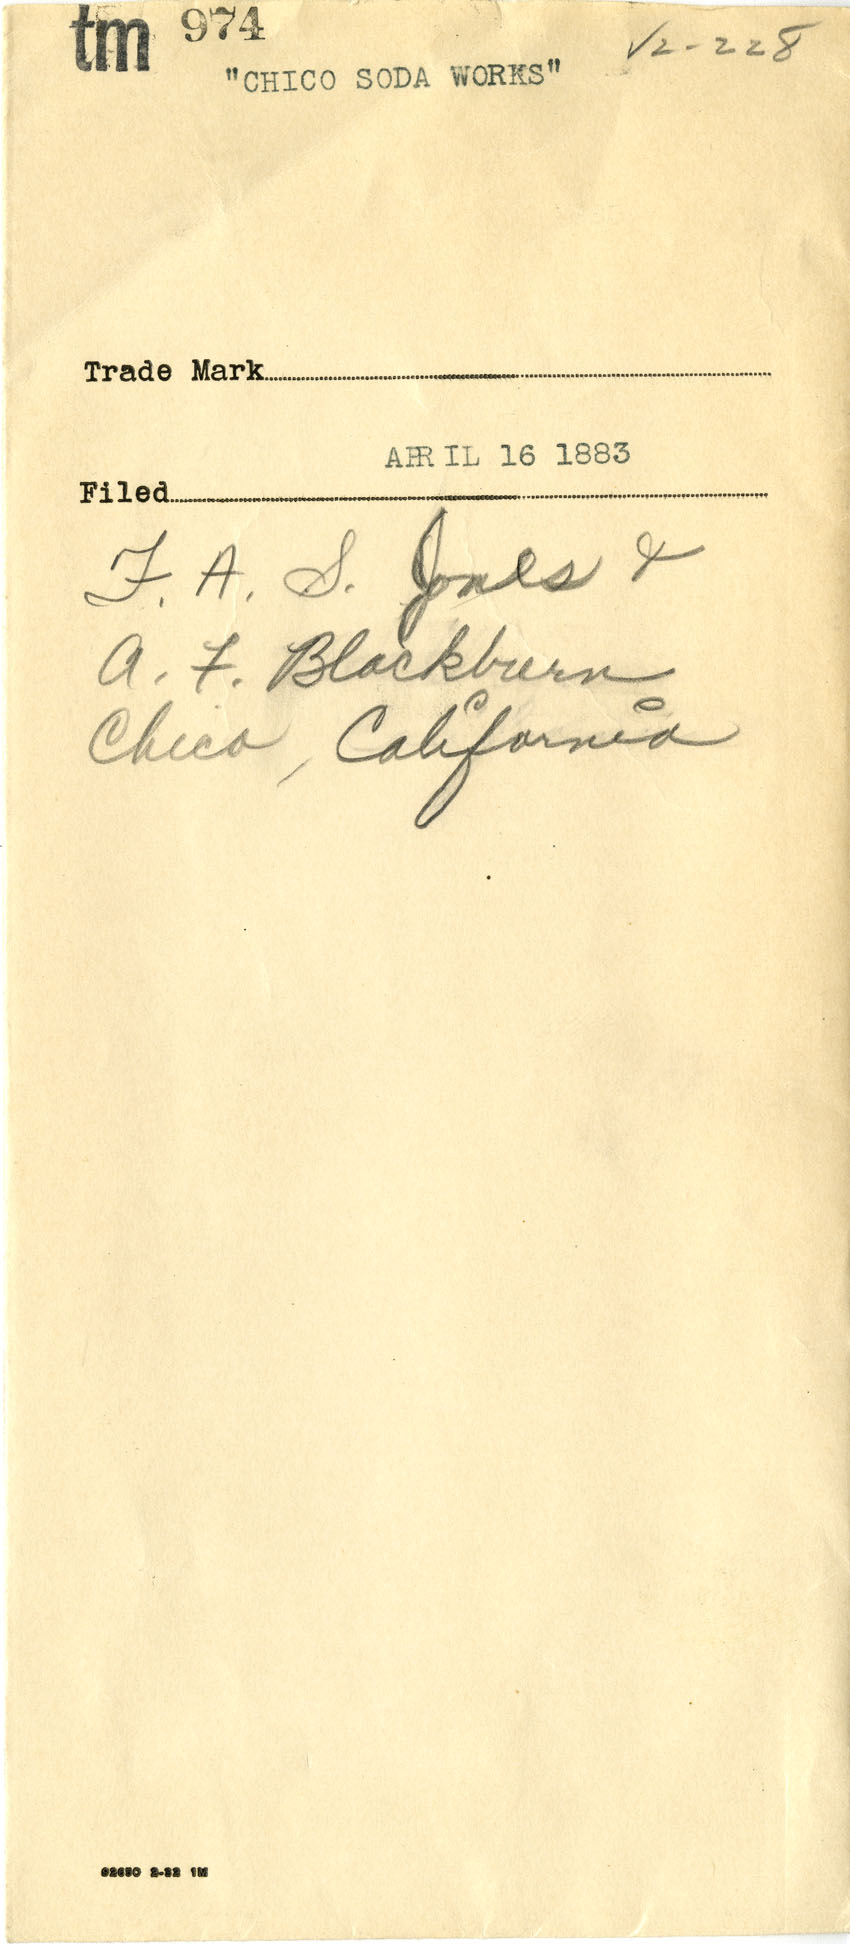 tm 974
V2-228
"CHICO SODA WORKS"
Trade Mark
APRIL 16 1883
Filed
F. A. S. Jones &
A. F. Blackburn
Chico, California
92650 2-32 1M